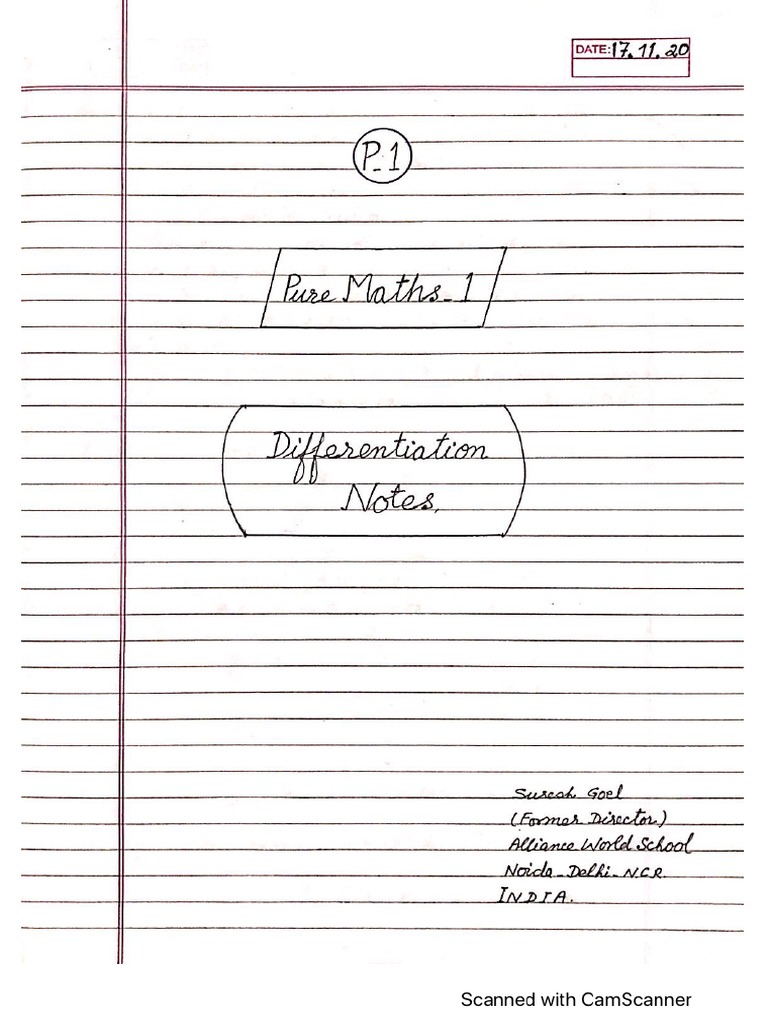 DATE: 17.11.20
P-1
Pure Maths-1
Differentiation
Notes.
Suresh Goel
(Former Director)
Alliance World School
Noida-Delhi-N.C.R.
INDIA.
Scanned with CamScanner